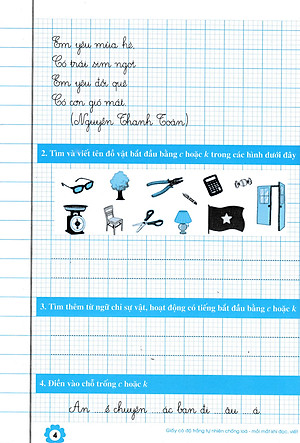 Em yêu mùa hè
Có trái sim ngọt
Em yêu đời quê
Có cơn gió mát.
(Nguyễn Thanh Toàn)
2. Tìm và viết tên đồ vật bắt đầu bằng c hoặc k trong các hình dưới đây
3. Tìm thêm từ ngữ chỉ sự vật, hoạt động có tiếng bắt đầu bằng c hoặc k
4. Điền vào chỗ trống c hoặc k
An ....ể chuyện ....ác bạn đi ....âu ....á
4
Giấy có độ trắng tự nhiên chống loá - mỏi mắt khi đọc, viết